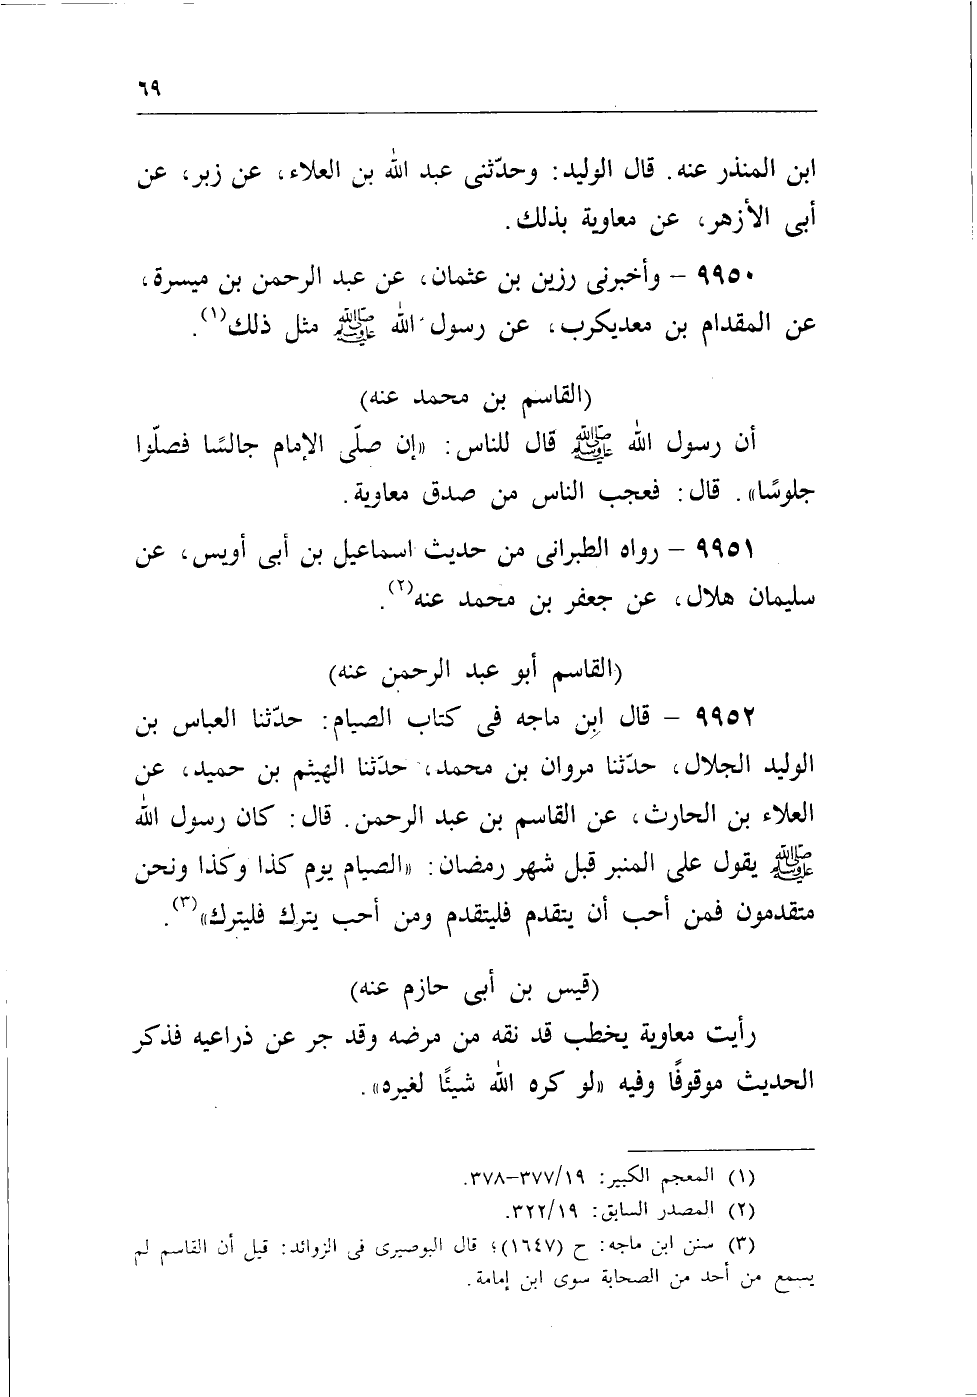 ٦٩
ابن المنذر عنه. قال الوليد: وحدّثنى عبد الله بن العلاء، عن زبر، عن
أبى الأزهر، عن معاوية بذلك.
٩٩٥٠ – وأخبرنى رزين بن عثمان، عن عبد الرحمن بن ميسرة،
عن المقدام بن معديكرب، عن رسول الله ﷺ مثل ذلك(١).
(القاسم بن محمد عنه)
أن رسول الله ﷺ قال للناس: «إن صلّى الإمام جالسًا فصلّوا
جلوسًا». قال: فعجب الناس من صدق معاوية.
٩٩٥١ – رواه الطبرانى من حديث اسماعيل بن أبى أويس، عن
سليمان هلال، عن جعفر بن محمد عنه(٢).
(القاسم أبو عبد الرحمن عنه)
٩٩٥٢ – قال ابن ماجه فى كتاب الصيام: حدّثنا العباس بن
الوليد الجلال، حدّثنا مروان بن محمد، حدّثنا الهيثم بن حميد، عن
العلاء بن الحارث، عن القاسم بن عبد الرحمن. قال: كان رسول الله
ﷺ يقول على المنبر قبل شهر رمضان: «الصيام يوم كذا وكذا ونحن
متقدمون فمن أحب أن يتقدم فليتقدم ومن أحب يترك فليترك»(٣).
(قيس بن أبى حازم عنه)
رأيت معاوية يخطب قد نقه من مرضه وقد جر عن ذراعيه فذكر
الحديث موقوفًا وفيه «لو كره الله شيئًا لغيره».
(١) المعجم الكبير: ٣٧٧/١٩–٣٧٨.
(٢) المصدر السابق: ٣٢٢/١٩.
(٣) سنن ابن ماجه: ح (١٦٤٧)؛ قال البوصيرى فى الزوائد: قيل أن القاسم لم
يسمع من أحد من الصحابة سوى ابن إمامة.